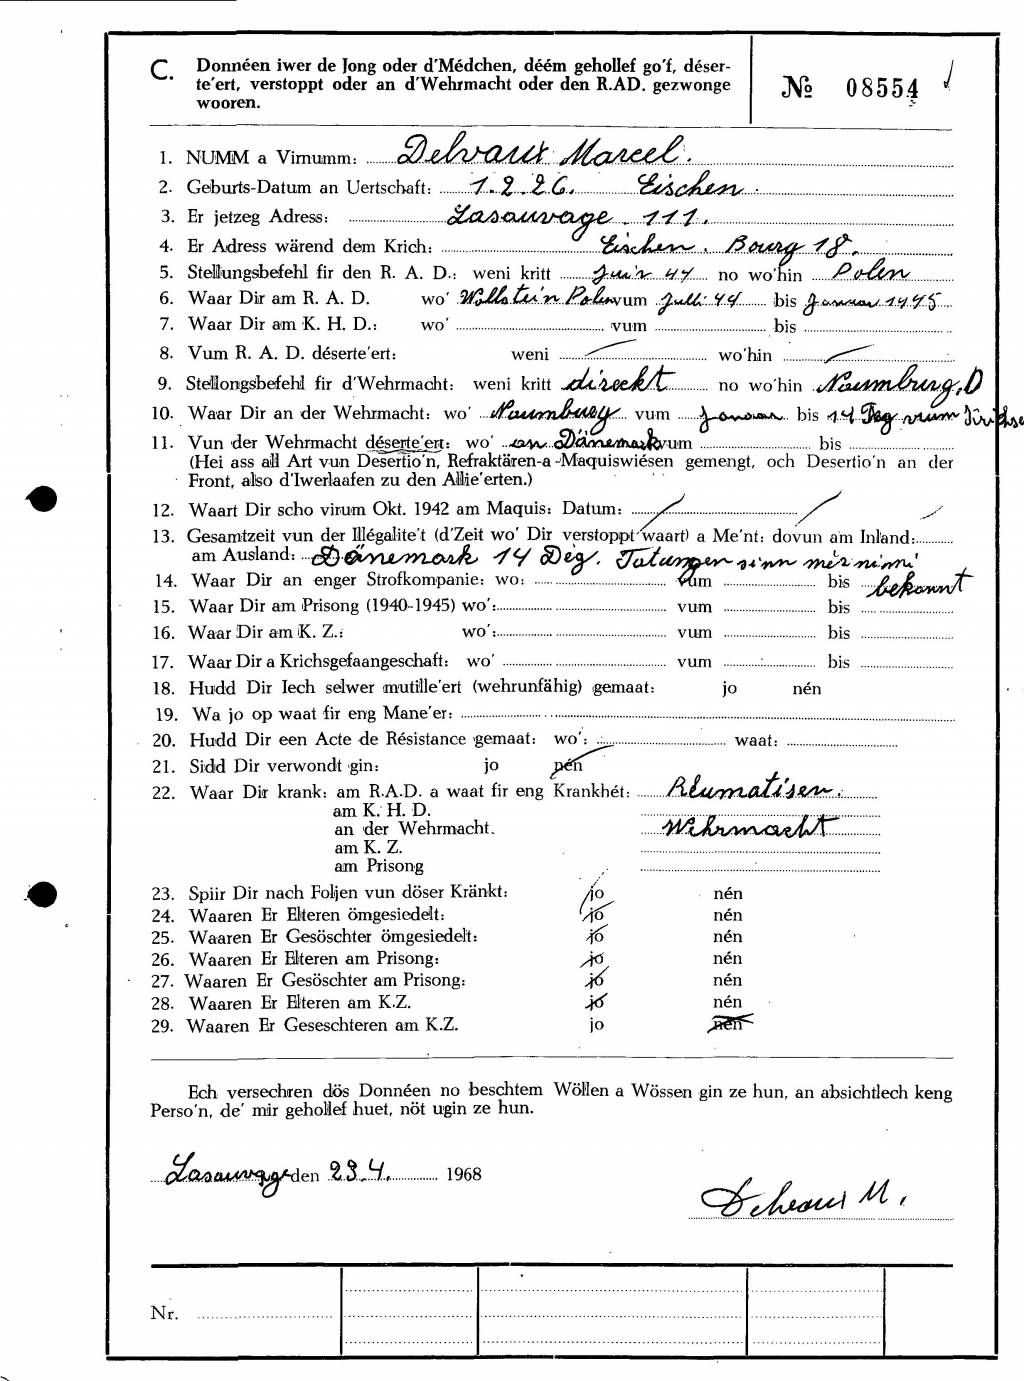 C. Donnéen iwer de Jong oder d'Médchen, déém gehollef go'f, déser-
te'ert, verstoppt oder an d'Wehrmacht oder den R.AD. gezwonge
wooren.
№ 08554
1. NUMM a Virnumm: Delvaux Marcel.
2. Geburts-Datum an Uertschaft: 1.2.26. Eischen.
3. Er jetzeg Adress: Lasauvage 111.
4. Er Adress wärend dem Krich: Eischen. Bourg 18.
5. Stellungsbefehl fir den R. A. D.: weni kritt Jui'n 44 no wo'hin Polen
6. Waar Dir am R. A. D. wo' Wollstei'n Polen vum Julli 44 bis Januar 1945
7. Waar Dir am K. H. D.: wo' vum bis
8. Vum R. A. D. déserte'ert: weni wo'hin
9. Stellongsbefehl fir d'Wehrmacht: weni kritt direckt no wo'hin Naumburg. D
10. Waar Dir an der Wehrmacht: wo' Naumburg vum Januar bis 14 Deg vrum
11. Vun der Wehrmacht déserte'ert: wo' an Dänemark vum bis
(Hei ass all Art vun Desertio'n, Refraktären-a-Maquiswiésen gemengt, och Desertio'n an der
Front, also d'Iwerlaafen zu den Allie'erten.)
12. Waart Dir scho virum Okt. 1942 am Maquis: Datum:
13. Gesamtzeit vun der Illégalite't (d'Zeit wo' Dir verstoppt waart) a Me'nt: dovun am Inland:
am Ausland: Dänemark 14 Deg. Tatungen sinn mer nimmi
14. Waar Dir an enger Strofkompanie: wo: vum bis bekannt
15. Waar Dir am Prison​g (1940-1945) wo': vum bis
16. Waar Dir am K. Z.: wo': vum bis
17. Waar Dir a Krichsgefaangeschaft: wo' vum bis
18. Hudd Dir Iech selwer mutille'ert (wehrunfähig) gemaat: jo nén
19. Wa jo op waat fir eng Mane'er:
20. Hudd Dir een Acte de Résistance gemaat: wo': waat:
21. Sidd Dir verwondt gin: jo nén
22. Waar Dir krank: am R.A.D. a waat fir eng Krankhét: Rhumatisen.
am K. H. D.
an der Wehrmacht. Wehrmacht
am K. Z.
am Prisong
23. Spiir Dir nach Foljen vun döser Kränkt: jo nén
24. Waaren Er Elteren ömgesiedelt: jo nén
25. Waaren Er Gesöschter ömgesiedelt: jo nén
26. Waaren Er Elteren am Prisong: jo nén
27. Waaren Er Gesöschter am Prisong: jo nén
28. Waaren Er Elteren am K.Z. jo nén
29. Waaren Er Geseschteren am K.Z. jo nén
Ech versechren dös Donnéen no beschtem Wöllen a Wössen gin ze hun, an absichtlech keng
Perso'n, de' mir gehollef huet, nöt ugin ze hun.
Lasauvage den 23.4. 1968
Delvaux M.
Nr.